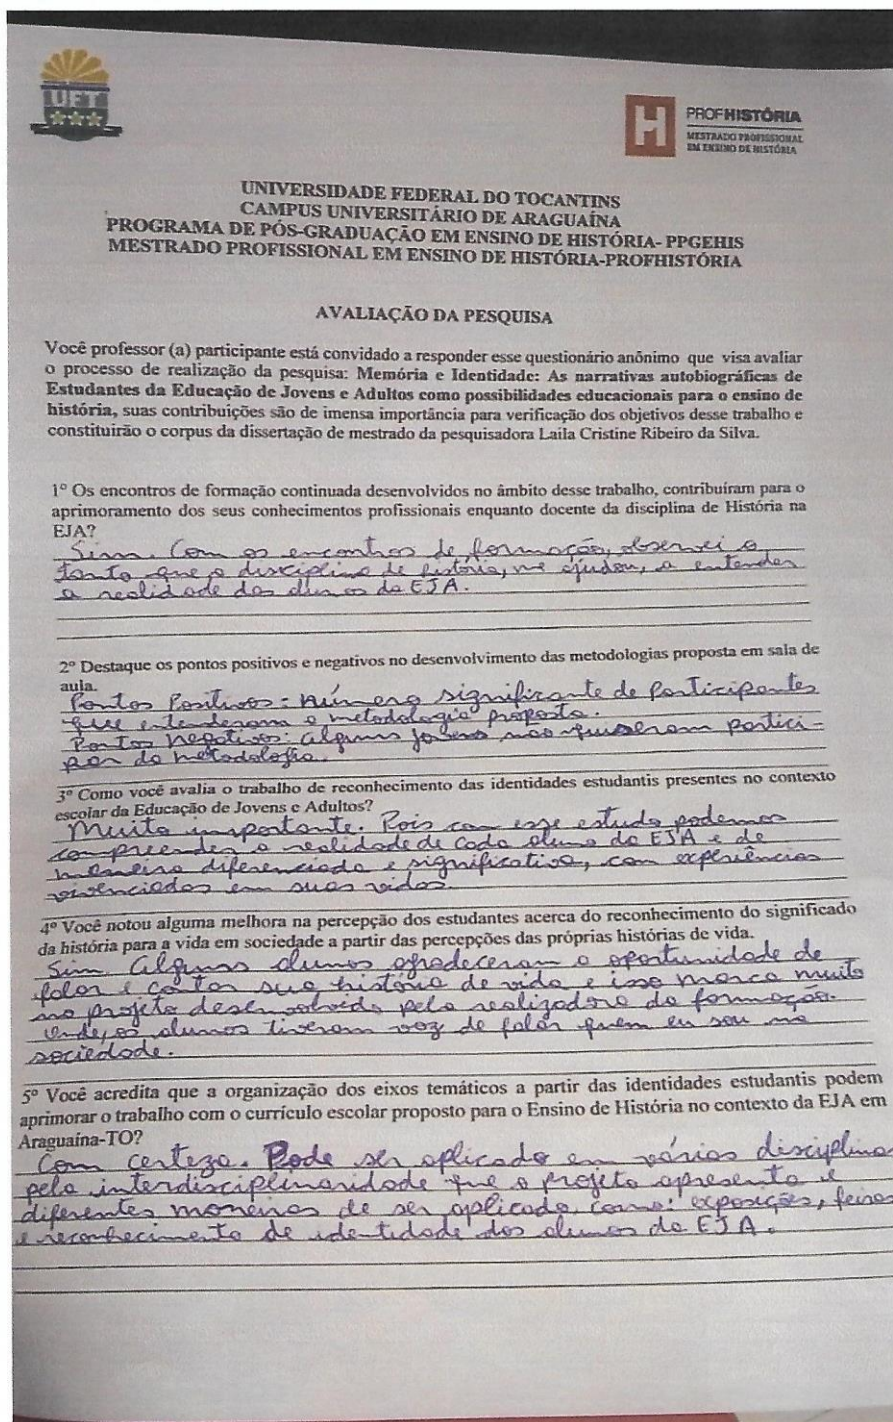 UFT
PROFHISTÓRIA
MESTRADO PROFISSIONAL
EM ENSINO DE HISTÓRIA
UNIVERSIDADE FEDERAL DO TOCANTINS
CAMPUS UNIVERSITÁRIO DE ARAGUAÍNA
PROGRAMA DE PÓS-GRADUAÇÃO EM ENSINO DE HISTÓRIA- PPGEHIS
MESTRADO PROFISSIONAL EM ENSINO DE HISTÓRIA-PROFHISTÓRIA
AVALIAÇÃO DA PESQUISA
Você professor (a) participante está convidado a responder esse questionário anônimo que visa avaliar
o processo de realização da pesquisa: Memória e Identidade: As narrativas autobiográficas de
Estudantes da Educação de Jovens e Adultos como possibilidades educacionais para o ensino de
história, suas contribuições são de imensa importância para verificação dos objetivos desse trabalho e
constituirão o corpus da dissertação de mestrado da pesquisadora Laila Cristine Ribeiro da Silva.
1º Os encontros de formação continuada desenvolvidos no âmbito desse trabalho, contribuíram para o
aprimoramento dos seus conhecimentos profissionais enquanto docente da disciplina de História na
EJA?
Sim. Com os encontros de formação, observei o
tanto que a disciplina de história, me ajudou, a entender
a realidade dos alunos da EJA.
2º Destaque os pontos positivos e negativos no desenvolvimento das metodologias proposta em sala de
aula.
Pontos Positivos: número significante de Participantes
que entenderam a metodologia proposta.
Pontos negativos: alguns jovens não quiseram partici-
par da metodologia.
3º Como você avalia o trabalho de reconhecimento das identidades estudantis presentes no contexto
escolar da Educação de Jovens e Adultos?
Muito importante. Pois com esse estudo podemos
compreender a realidade de cada aluno da EJA e de
maneira diferenciada e significativa, com experiências
vivenciadas em suas vidas.
4º Você notou alguma melhora na percepção dos estudantes acerca do reconhecimento do significado
da história para a vida em sociedade a partir das percepções das próprias histórias de vida.
Sim. Alguns alunos agradeceram a oportunidade de
falar e contar sua história de vida e isso marca muito
no projeto desenvolvido pela realizadora da formação.
Onde, os alunos tiveram voz de falar quem eu sou na
sociedade.
5º Você acredita que a organização dos eixos temáticos a partir das identidades estudantis podem
aprimorar o trabalho com o currículo escolar proposto para o Ensino de História no contexto da EJA em
Araguaína-TO?
Com certeza. Pode ser aplicado em várias disciplinas
pela interdisciplinaridade que o projeto apresenta e
diferentes maneiras de ser aplicada como: exposições, feiras
e reconhecimento de identidade dos alunos da EJA.